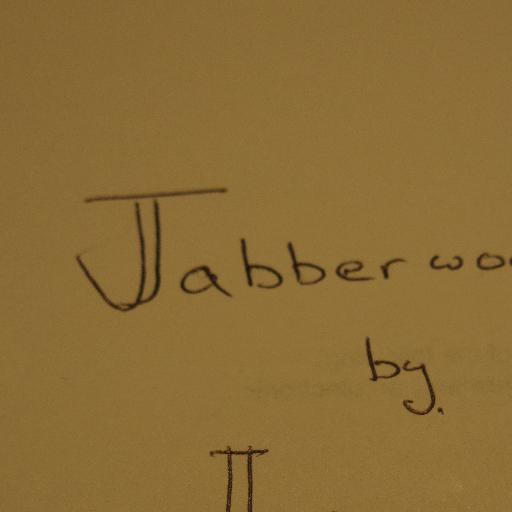 Jabberwo
by.